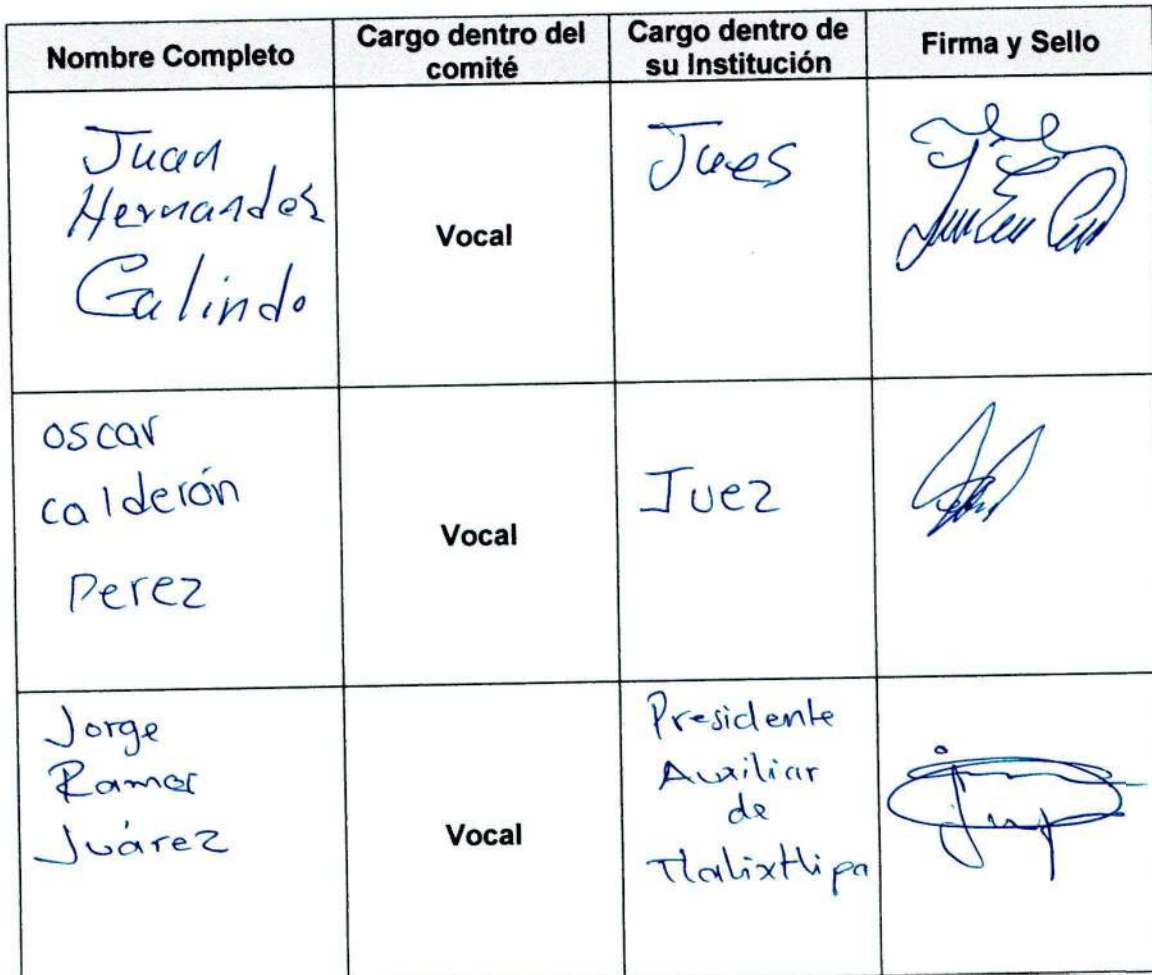 Nombre Completo
Cargo dentro del
comité
Cargo dentro de
su Institución
Firma y Sello
Juan
Hernandes
Galindo
Vocal
Jues
oscar
calderón
Perez
Vocal
Juez
Jorge
Ramos
Juárez
Vocal
Presidente
Auxiliar
de
Tlalixtlipa